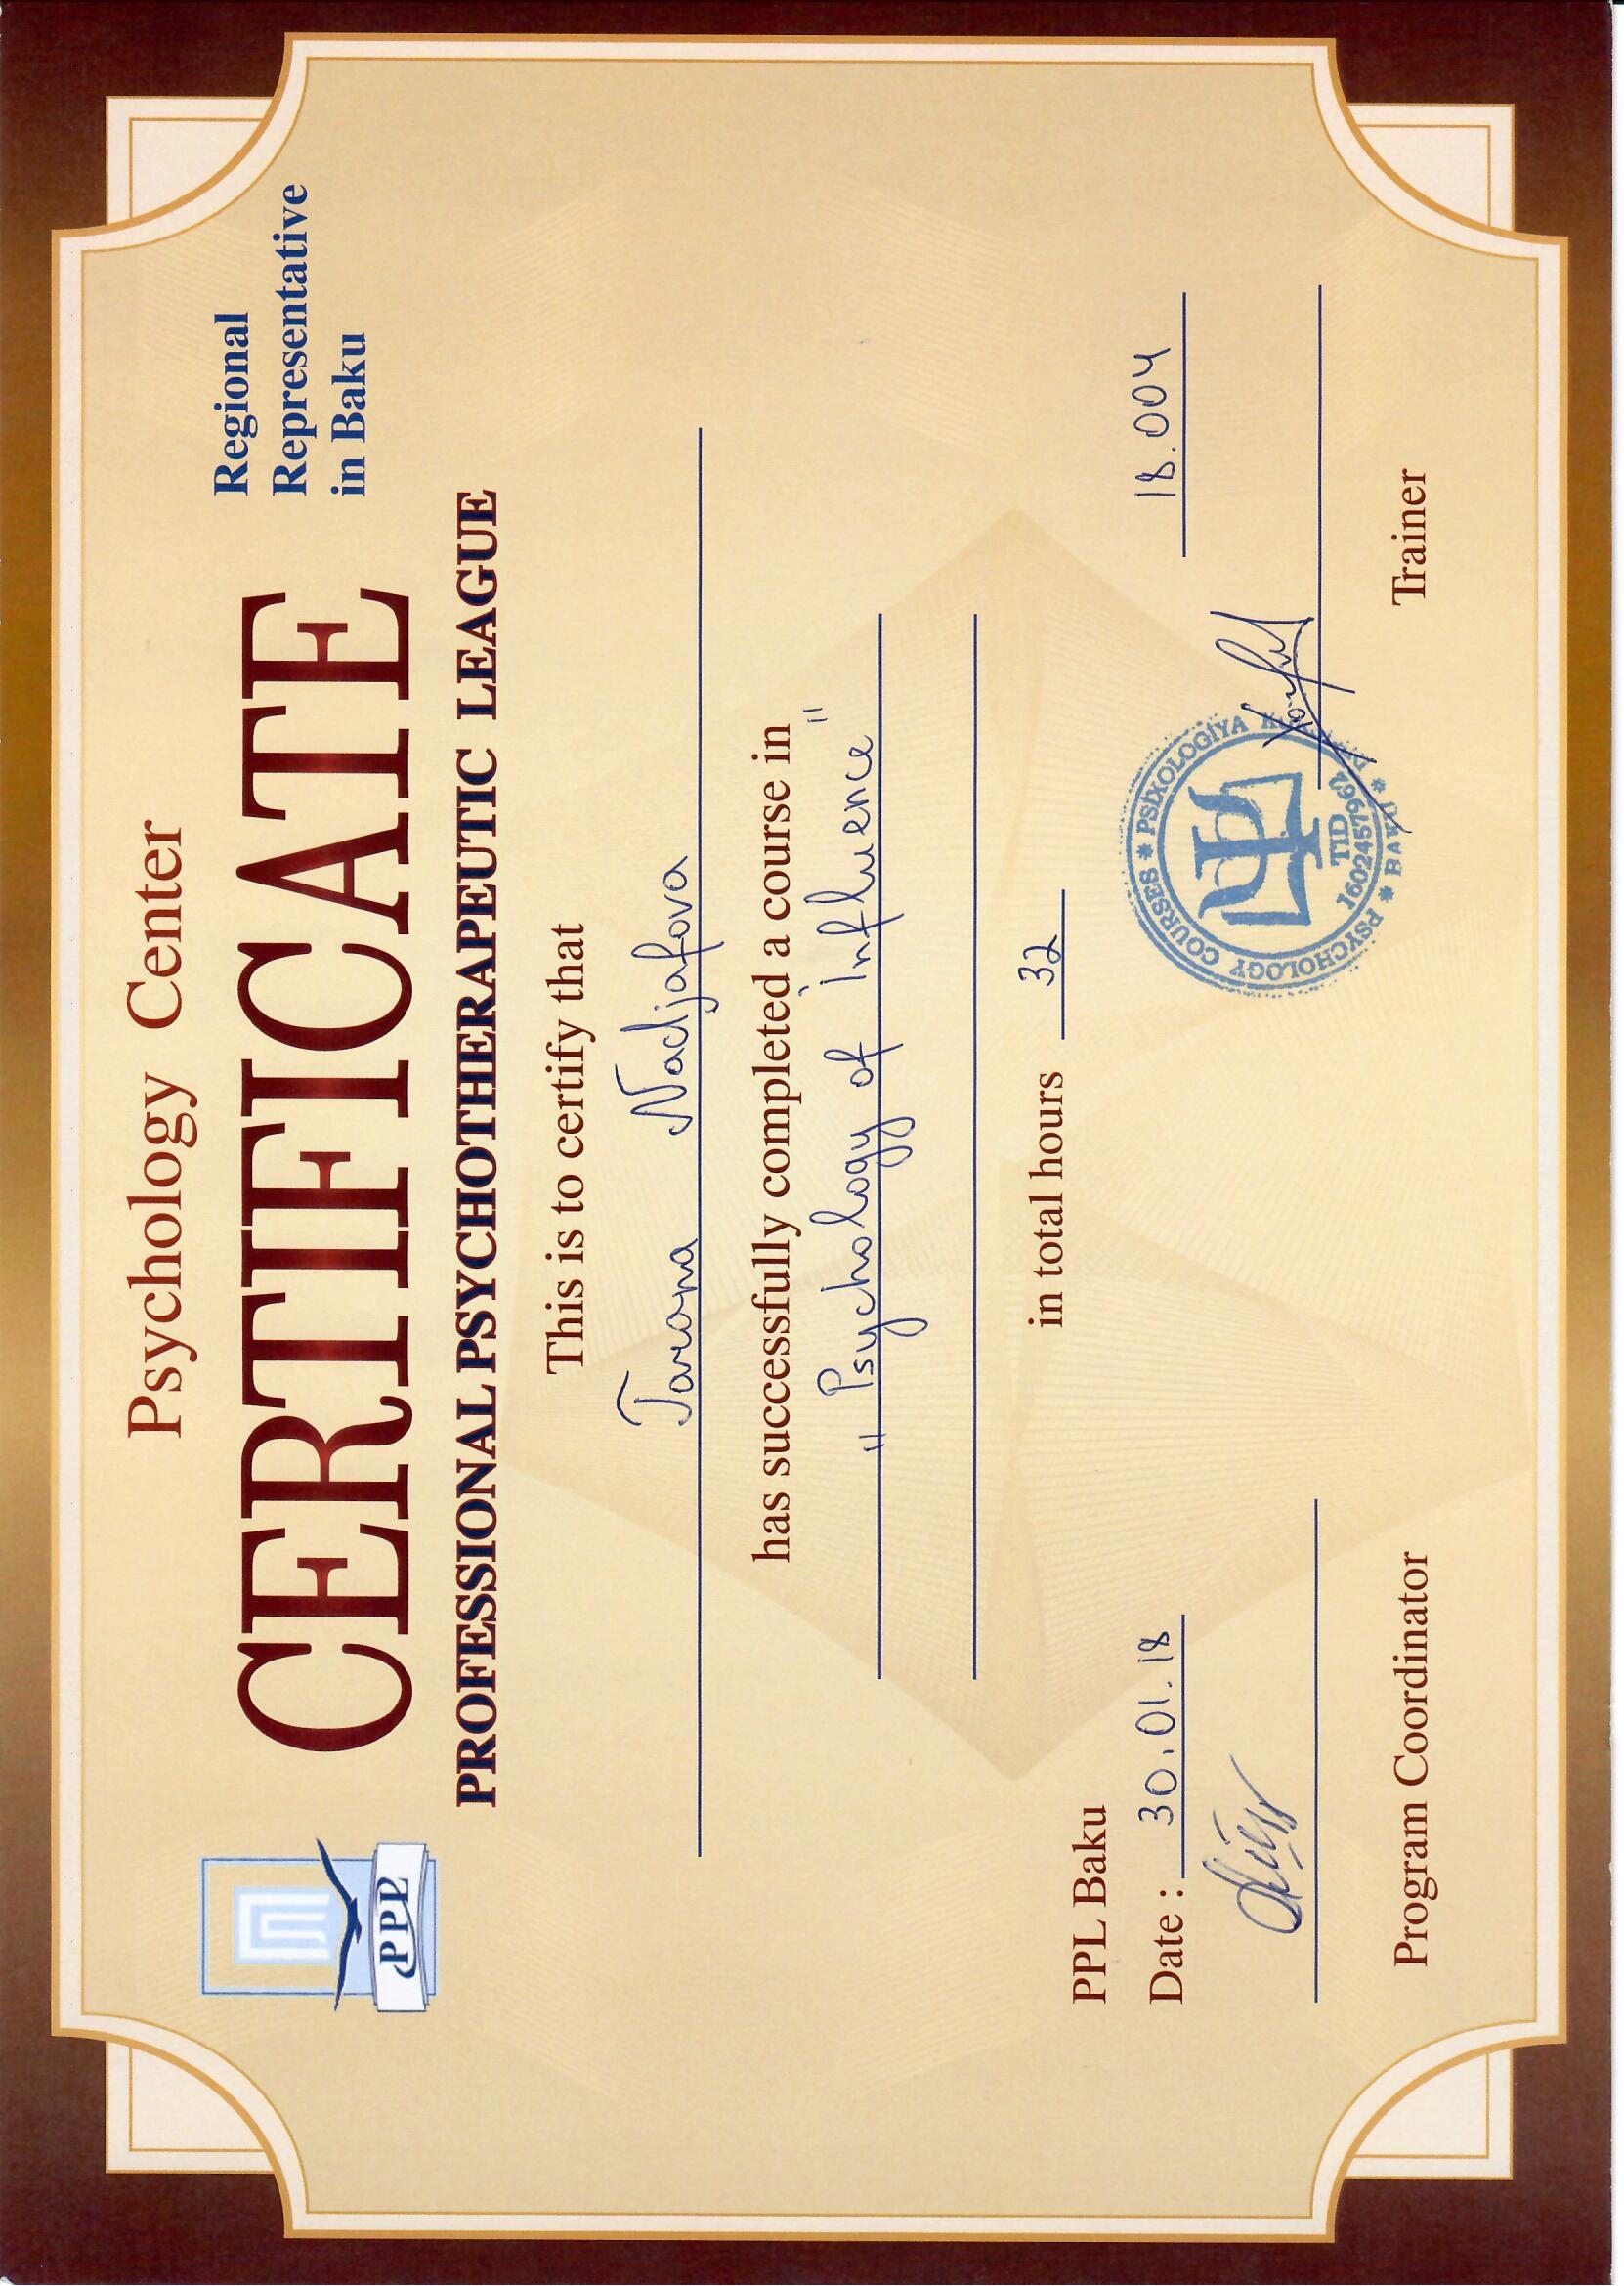 Psychology Center
CERTIFICATE
Regional
Representative
in Baku
PPL
PROFESSIONAL PSYCHOTHERAPEUTIC LEAGUE
This is to certify that
Tarana Nadjafova
has successfully completed a course in
„Psychology of İnfluence"
in total hours 32
PPL Baku
Date : 30.01.18
18.004
PSYCHOLOGY COURSES * PSİXOLOGİYA
TID
1602457962
* BAKU *
Program Coordinator
Trainer